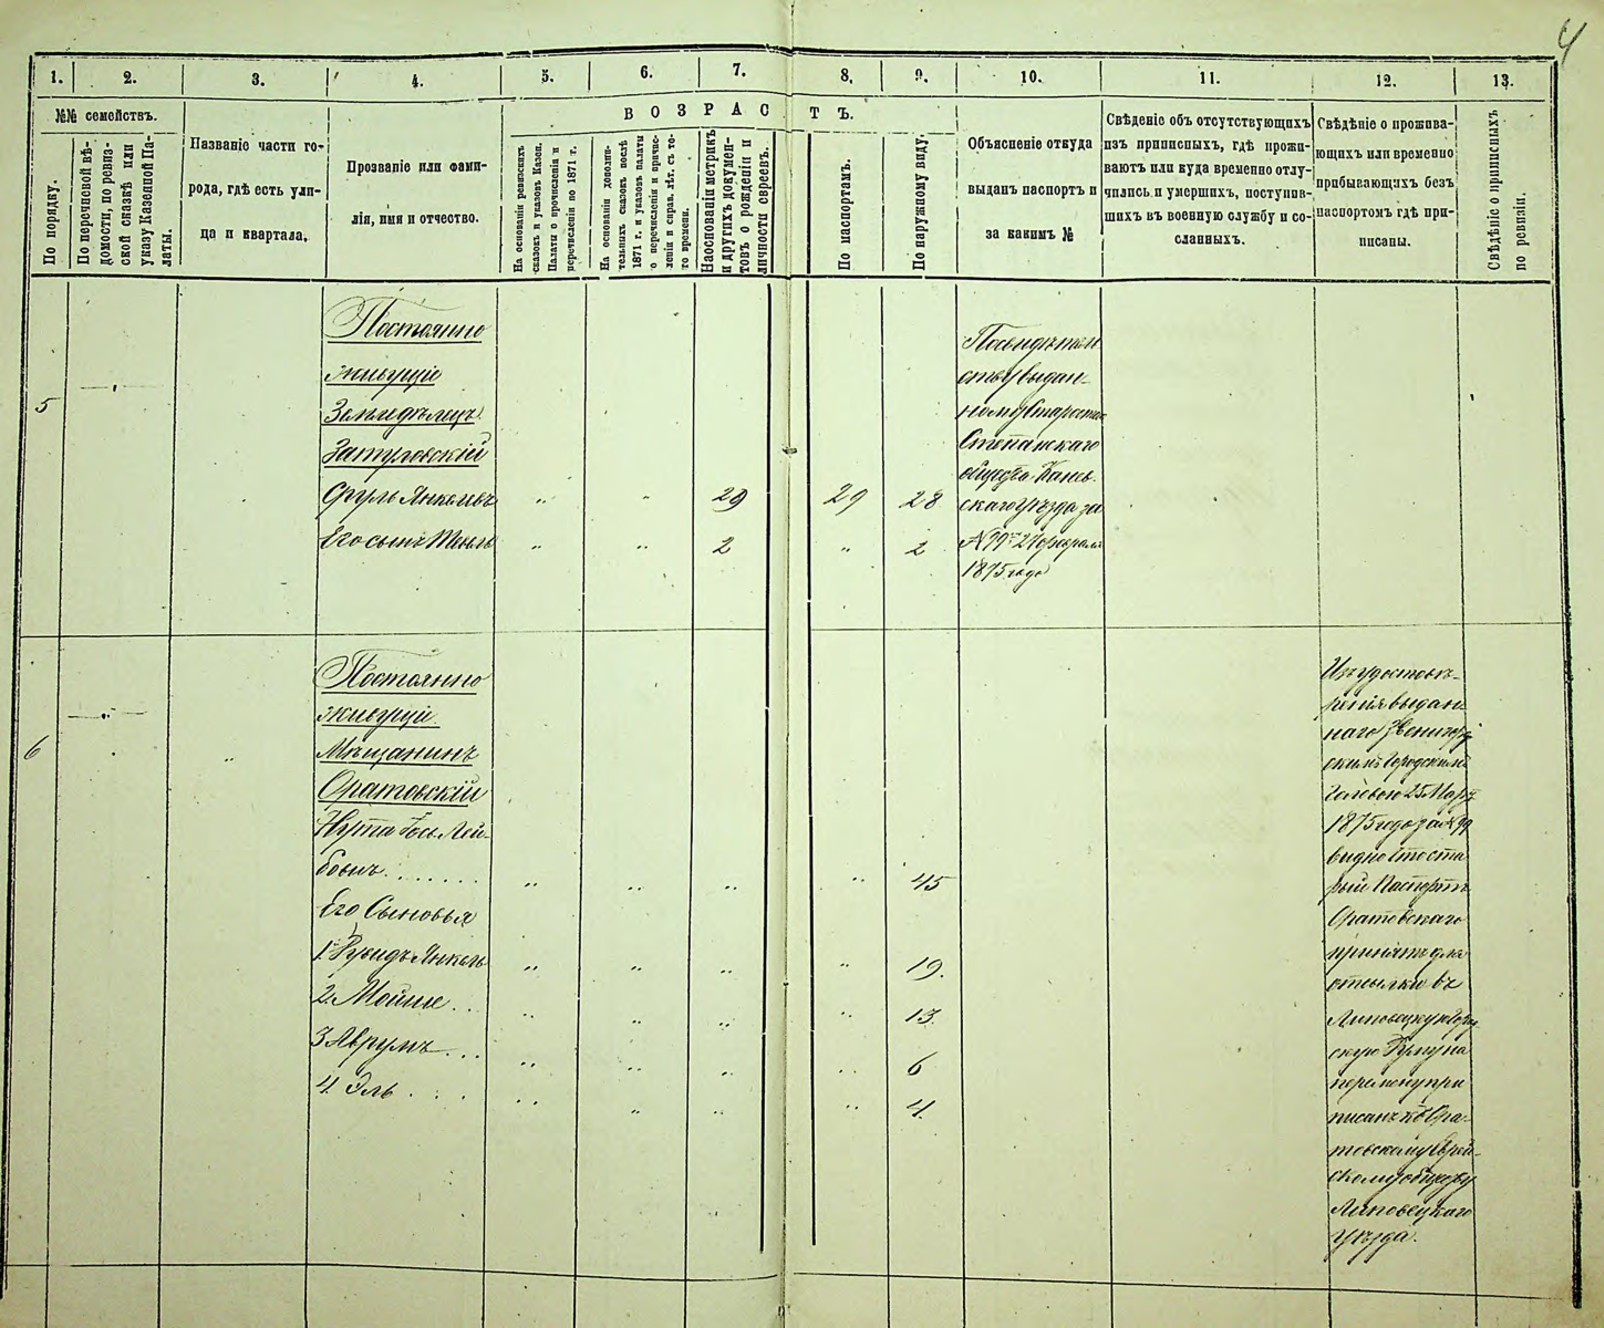 4
1.
2.
3.
4.
5.
6.
7.
8.
9.
10.
11.
12.
13.
№№ семействъ.
По порядку.
По перечневой вѣ-
домости, по ревиз-
ской сказкѣ или
указу Казенной Па-
латы.
Названіе части го-
рода, гдѣ есть ули-
ца и квартала.
Прозваніе или фами-
лія, имя и отчество.
ВОЗРАСТЪ.
На основаніи ревизскихъ
сказокъ и указовъ Казен.
Палаты о причисленіи и
перечисленіи по 1871 г.
На основаніи дополни-
тельныхъ сказокъ послѣ
1871 г. и указовъ палаты
о перечисленіи и причис-
леніи и справ. лѣт. съ то-
го времени.
На основаніи метрикъ
и другихъ докумен-
товъ о рожденіи и
личности евреевъ.
По паспортамъ.
По наружному виду.
Объясненіе откуда
выданъ паспортъ и
за какимъ №
Свѣденіе объ отсутствующихъ
изъ приписныхъ, гдѣ прожи-
ваютъ или куда временно отлу-
чились и умершихъ, поступив-
шихъ въ военную службу и со-
сланныхъ.
Свѣдѣніе о прожива-
ющихъ или временно
прибывающихъ безъ
паспортомъ гдѣ при-
писаны.
Свѣдѣніе о приписныхъ
по ревизіи.
5
Постоянно
живущіе
Земледѣлецъ
Затуловскій
Сруль Янкелевъ
29
29
28
Его сынъ
2
2
По свидѣтель
ству выдан-
ному Старостою
Степанскаго
общества Канев-
скаго уѣзда за
№ 99 27 февраля
1875 года
6
Постоянно
живущіе
Мѣщанинъ
Оратовскій
Нута Іось Лей-
бовъ
45
Его Сыновья
1. Янкель
19.
2. Мойше
13
3 Аврумъ
6
4. Эль
4.
Изъ удостовѣ-
ренія выдан-
наго Звенигород
скимъ Городскимъ
Головою 25 Марта
1875 года за № 99
видно что ста
рый Паспортъ
Оратовскаго
принятъ для
отсылки въ
Липовецкую Город
скую Думу на
перемену при
писанъ къ Ора-
товскому Еврей-
скому обществу
Липовецкаго
уѣзда.